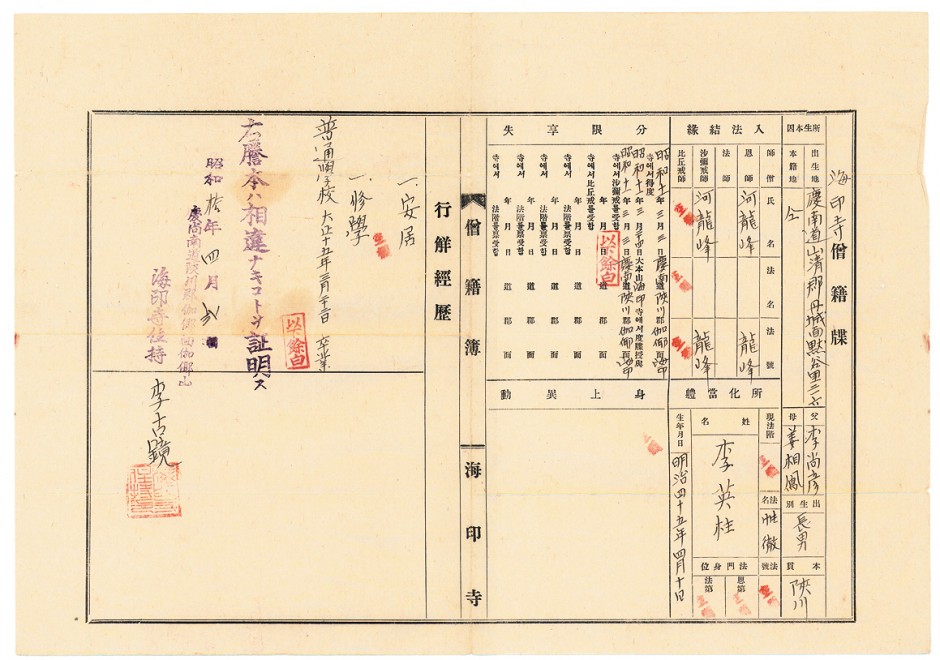 海印寺僧籍牒
所生本因
出生地 慶南道山淸郡丹城面黙谷里
本籍地 仝
父 李尚彦
母 姜相鳳
出生別 長男
本貫 陜川
入法結緣
師僧 氏名 法名 法號
恩師 河龍峰 龍峰
法師
沙彌戒師 河龍峰 龍峰
比丘戒師
所化當體
現法階
法名 性徹
法號
姓名 李英柱
法門身位
恩第
法第
生年月日 明治四十五年四月十日
分限享失
昭和十一年三月三日慶南道陜川郡伽倻面海印寺에서得度
昭和十一年三月 日大本山海印寺에서度牒授與
昭和十一年三月三日慶南道陜川郡伽倻面海印寺에서沙彌戒를受함
年 月 日 道 郡 面 寺에서比丘戒를受함
年 月 日 道 郡 面 寺에서 法階를稟受함
年 月 日 道 郡 面 寺에서 法階를稟受함
年 月 日 道 郡 面 寺에서 法階를稟受함
年 月 日 道 郡 面 寺에서 法階를稟受함
以下餘白
身上異動
僧籍簿
海印寺
行解經歷
一、安居
一、修學
普通學校 大正十五年三月 日 卒業
以下餘白
右謄本ハ相違ナキコトヲ証明ス
昭和拾 年四月 日
慶尚南道陜川郡伽倻面伽倻山
海印寺住持
李古鏡